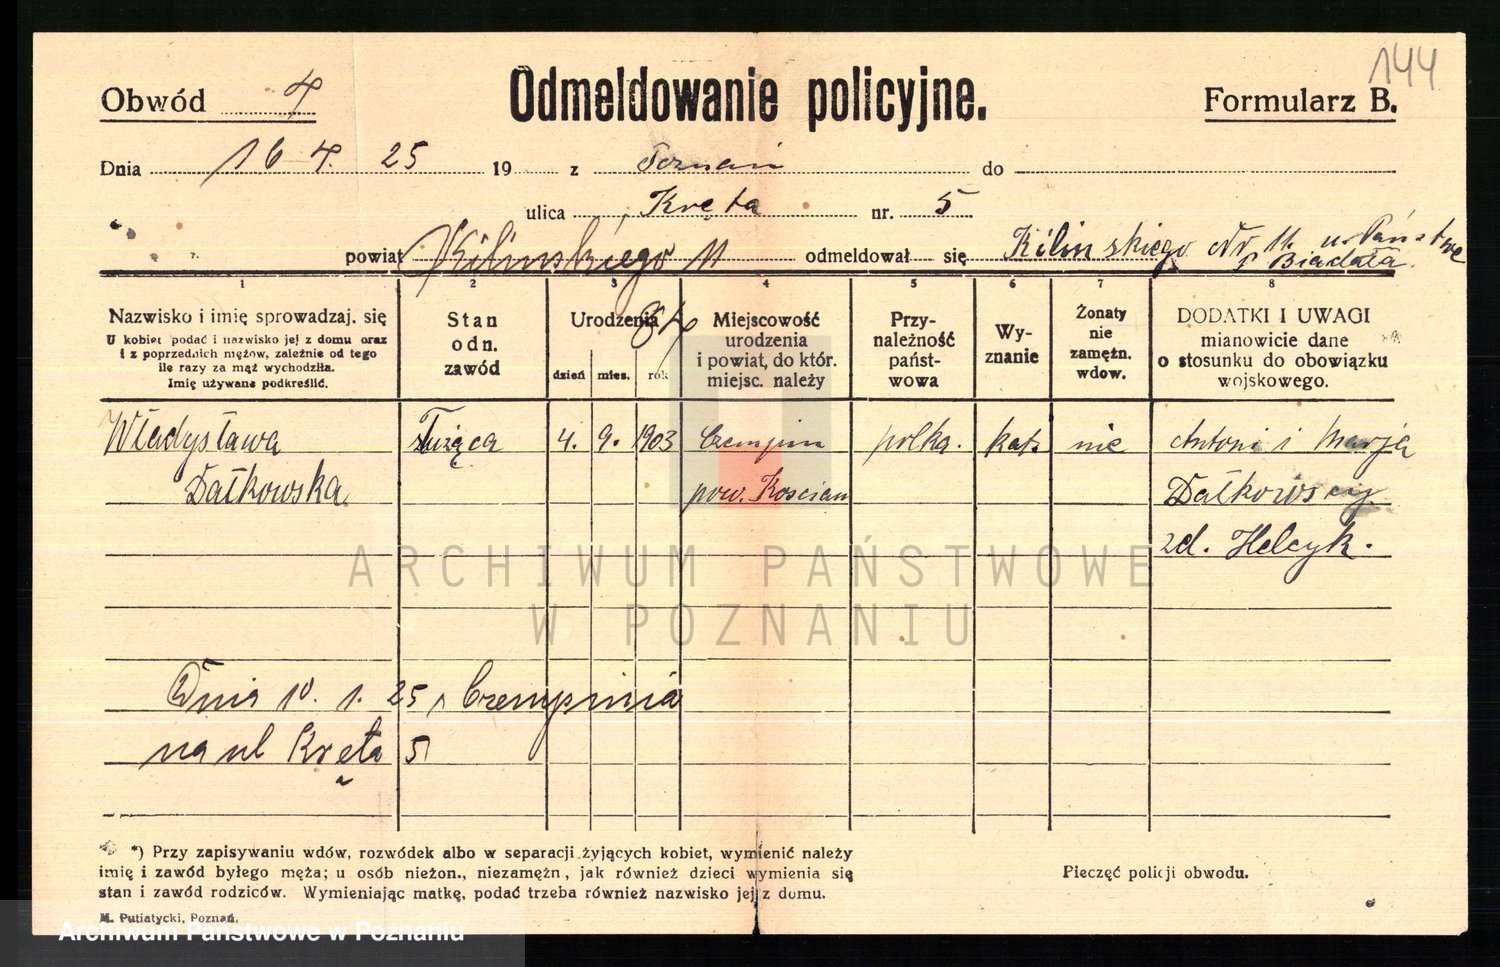 144
Obwód 4 Odmeldowanie policyjne. Formularz B.
Dnia 16 4. 25 19 z Poznań do
ulica Kręta nr. 5
powiat Kilińskiego 11 odmeldował się Kilińskiego Nr. 11. u Państwa
P Biadała
1 2 3 4 5 6 7 8
Nazwisko i imię sprowadzaj. się
U kobiet podać i nazwisko jej z domu oraz
i z poprzednich mężów, zależnie od tego
ile razy za mąż wychodziła.
Imię używane podkreślić.
Stan
odn.
zawód
Urodzenia
dzień mies. rok
Miejscowość
urodzenia
i powiat, do któr.
miejsc. należy
Przy-
należność
państ-
wowa
Wy-
znanie
Żonaty
nie
zamężn.
wdow.
DODATKI I UWAGI
mianowicie dane
o stosunku do obowiązku
wojskowego.
Władysława służąca 4. 9. 1903 Czempin polka. kat. nie Antoni i Marja
Dałkowska pow. Kościan Dałkowscy
zd. Helcyk.
Dnia 10. 1. 25 z Czempinia
na ul Kręta 5
*) Przy zapisywaniu wdów, rozwódek albo w separacji żyjących kobiet, wymienić należy
imię i zawód byłego męża; u osób nieżon., niezamężn, jak również dzieci wymienia się
stan i zawód rodziców. Wymieniając matkę, podać trzeba również nazwisko jej z domu.
Pieczęć policji obwodu.
M. Putiatycki, Poznań.
ARCHIWUM PAŃSTWOWE
W POZNANIU
Archiwum Państwowe w Poznaniu